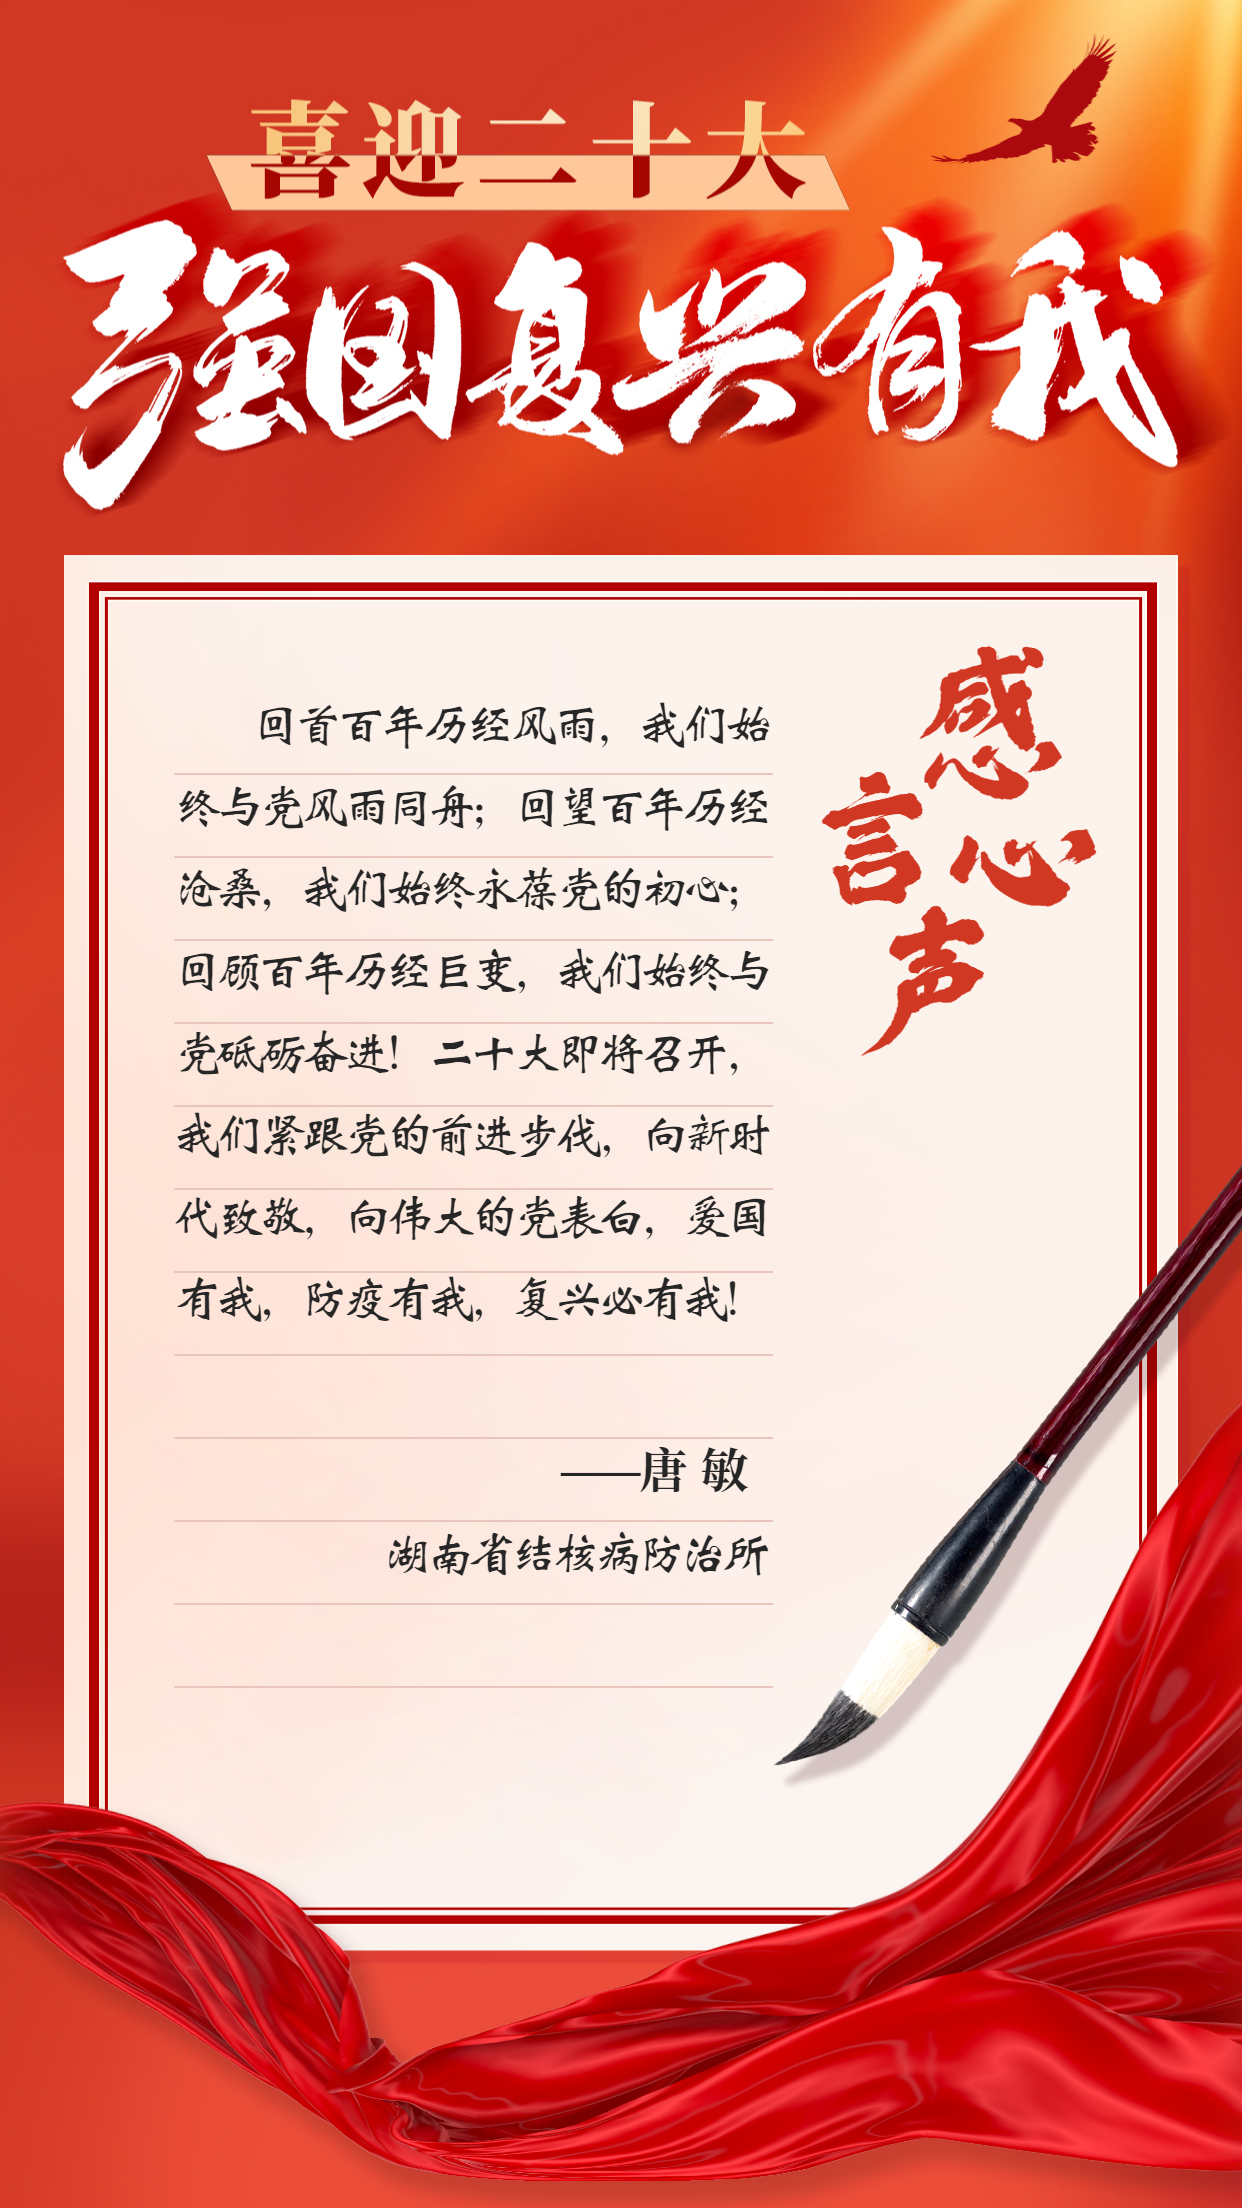 喜迎二十大
强国复兴有我
感言心声
回首百年历经风雨，我们始
终与党风雨同舟；回望百年历经
沧桑，我们始终永葆党的初心；
回顾百年历经巨变，我们始终与
党砥砺奋进！二十大即将召开，
我们紧跟党的前进步伐，向新时
代致敬，向伟大的党表白，爱国
有我，防疫有我，复兴必有我！
——唐 敏
湖南省结核病防治所